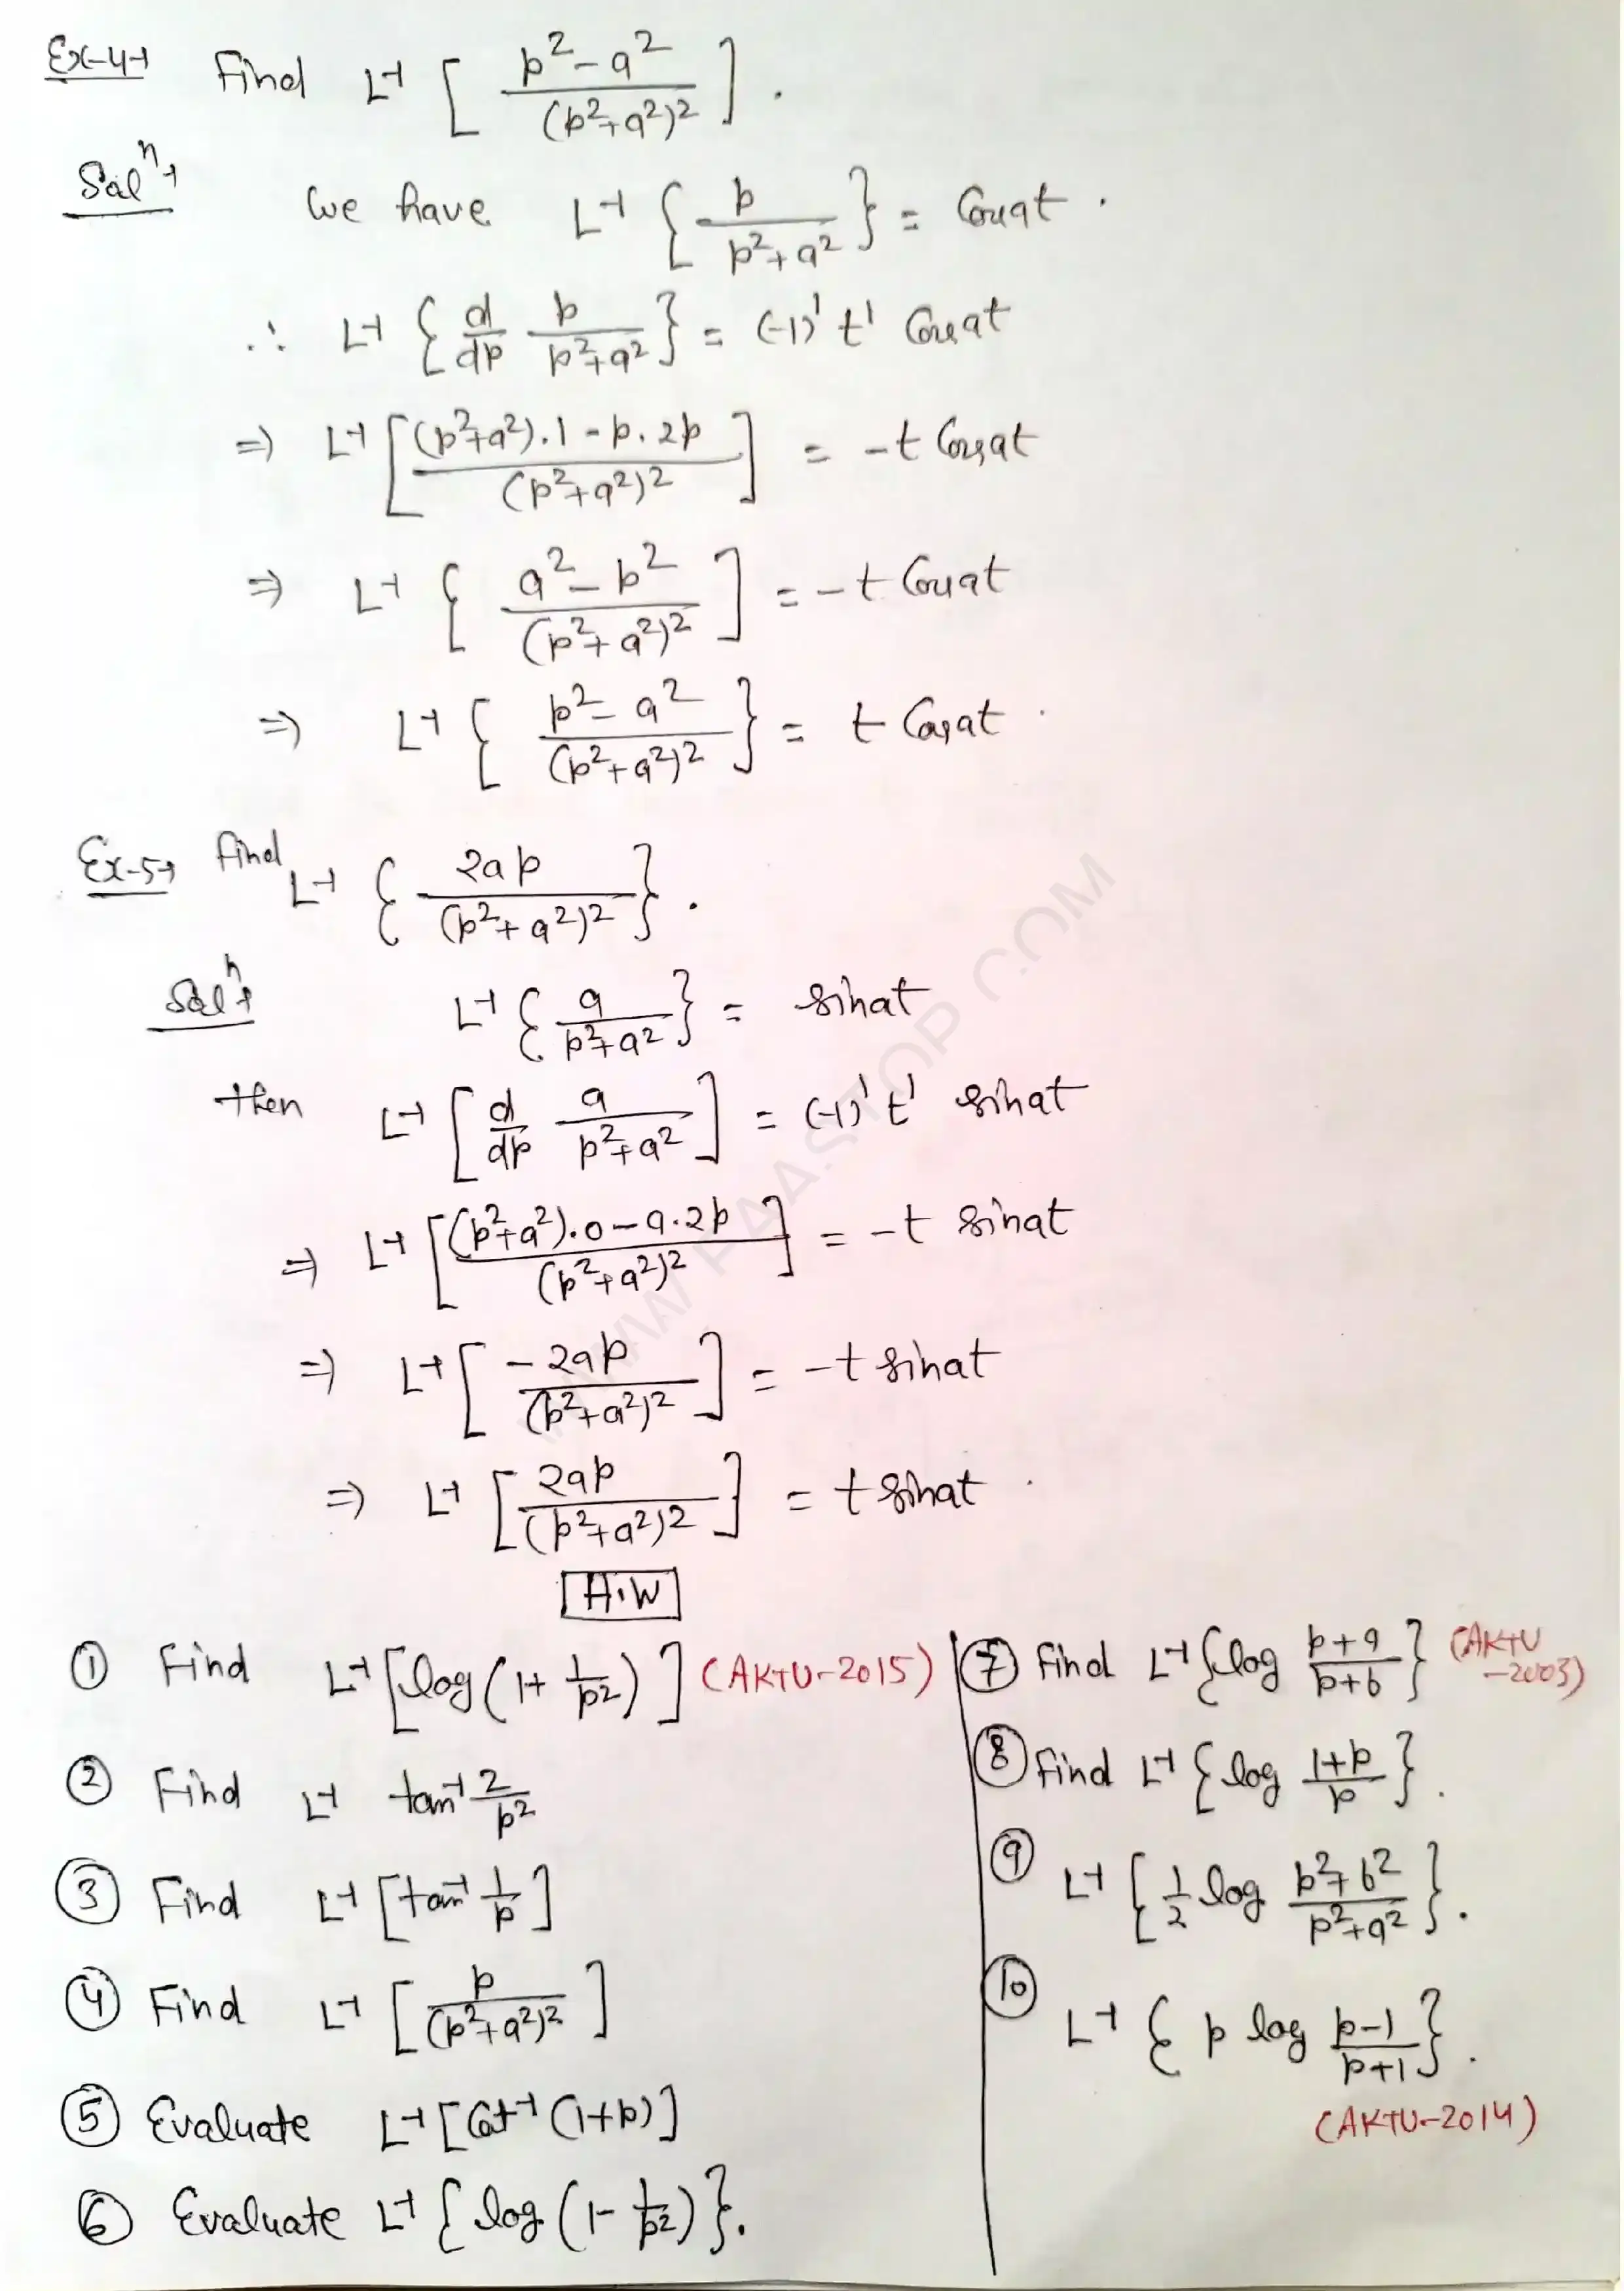 Ex-4→ Find L⁻¹ [ (p²-a²)/(p²+a²)² ].
Solⁿ→ We have L⁻¹ { p/(p²+a²) } = Cosat.
∴ L⁻¹ { d/dp p/(p²+a²) } = (-1)¹ t¹ Cosat
⇒ L⁻¹ [ ((p²+a²).1 - p.2p)/(p²+a²)² ] = -t Cosat
⇒ L⁻¹ { (a²-p²)/(p²+a²)² ] = -t Cosat
⇒ L⁻¹ { (p²-a²)/(p²+a²)² } = t Cosat.
Ex-5→ Find L⁻¹ { 2ap/(p²+a²)² }.
Solⁿ→ L⁻¹ { a/(p²+a²) } = sinat
then L⁻¹ [ d/dp a/(p²+a²) ] = (-1)¹ t¹ sinat
⇒ L⁻¹ [ ((p²+a²).0 - a.2p)/(p²+a²)² ] = -t sinat
⇒ L⁻¹ [ -2ap/(p²+a²)² ] = -t sinat
⇒ L⁻¹ [ 2ap/(p²+a²)² ] = t sinat.
H.W
① Find L⁻¹ [ log (1+ 1/p²) ] (AKTU-2015)
② Find L⁻¹ tan⁻¹ 2/p²
③ Find L⁻¹ [ tan⁻¹ 1/p ]
④ Find L⁻¹ [ p/(p²+a²)² ]
⑤ Evaluate L⁻¹ [ Cot⁻¹ (1+p) ]
⑥ Evaluate L⁻¹ { log (1- 1/p²) }.
⑦ Find L⁻¹ { log (p+a)/(p+b) } (AKTU-2003)
⑧ Find L⁻¹ { log (1+p)/p }.
⑨ L⁻¹ { 1/2 log (p²+b²)/(p²+a²) }.
⑩ L⁻¹ { p log (p-1)/(p+1) }.
(AKTU-2014)
WWW.PAASTOP.COM